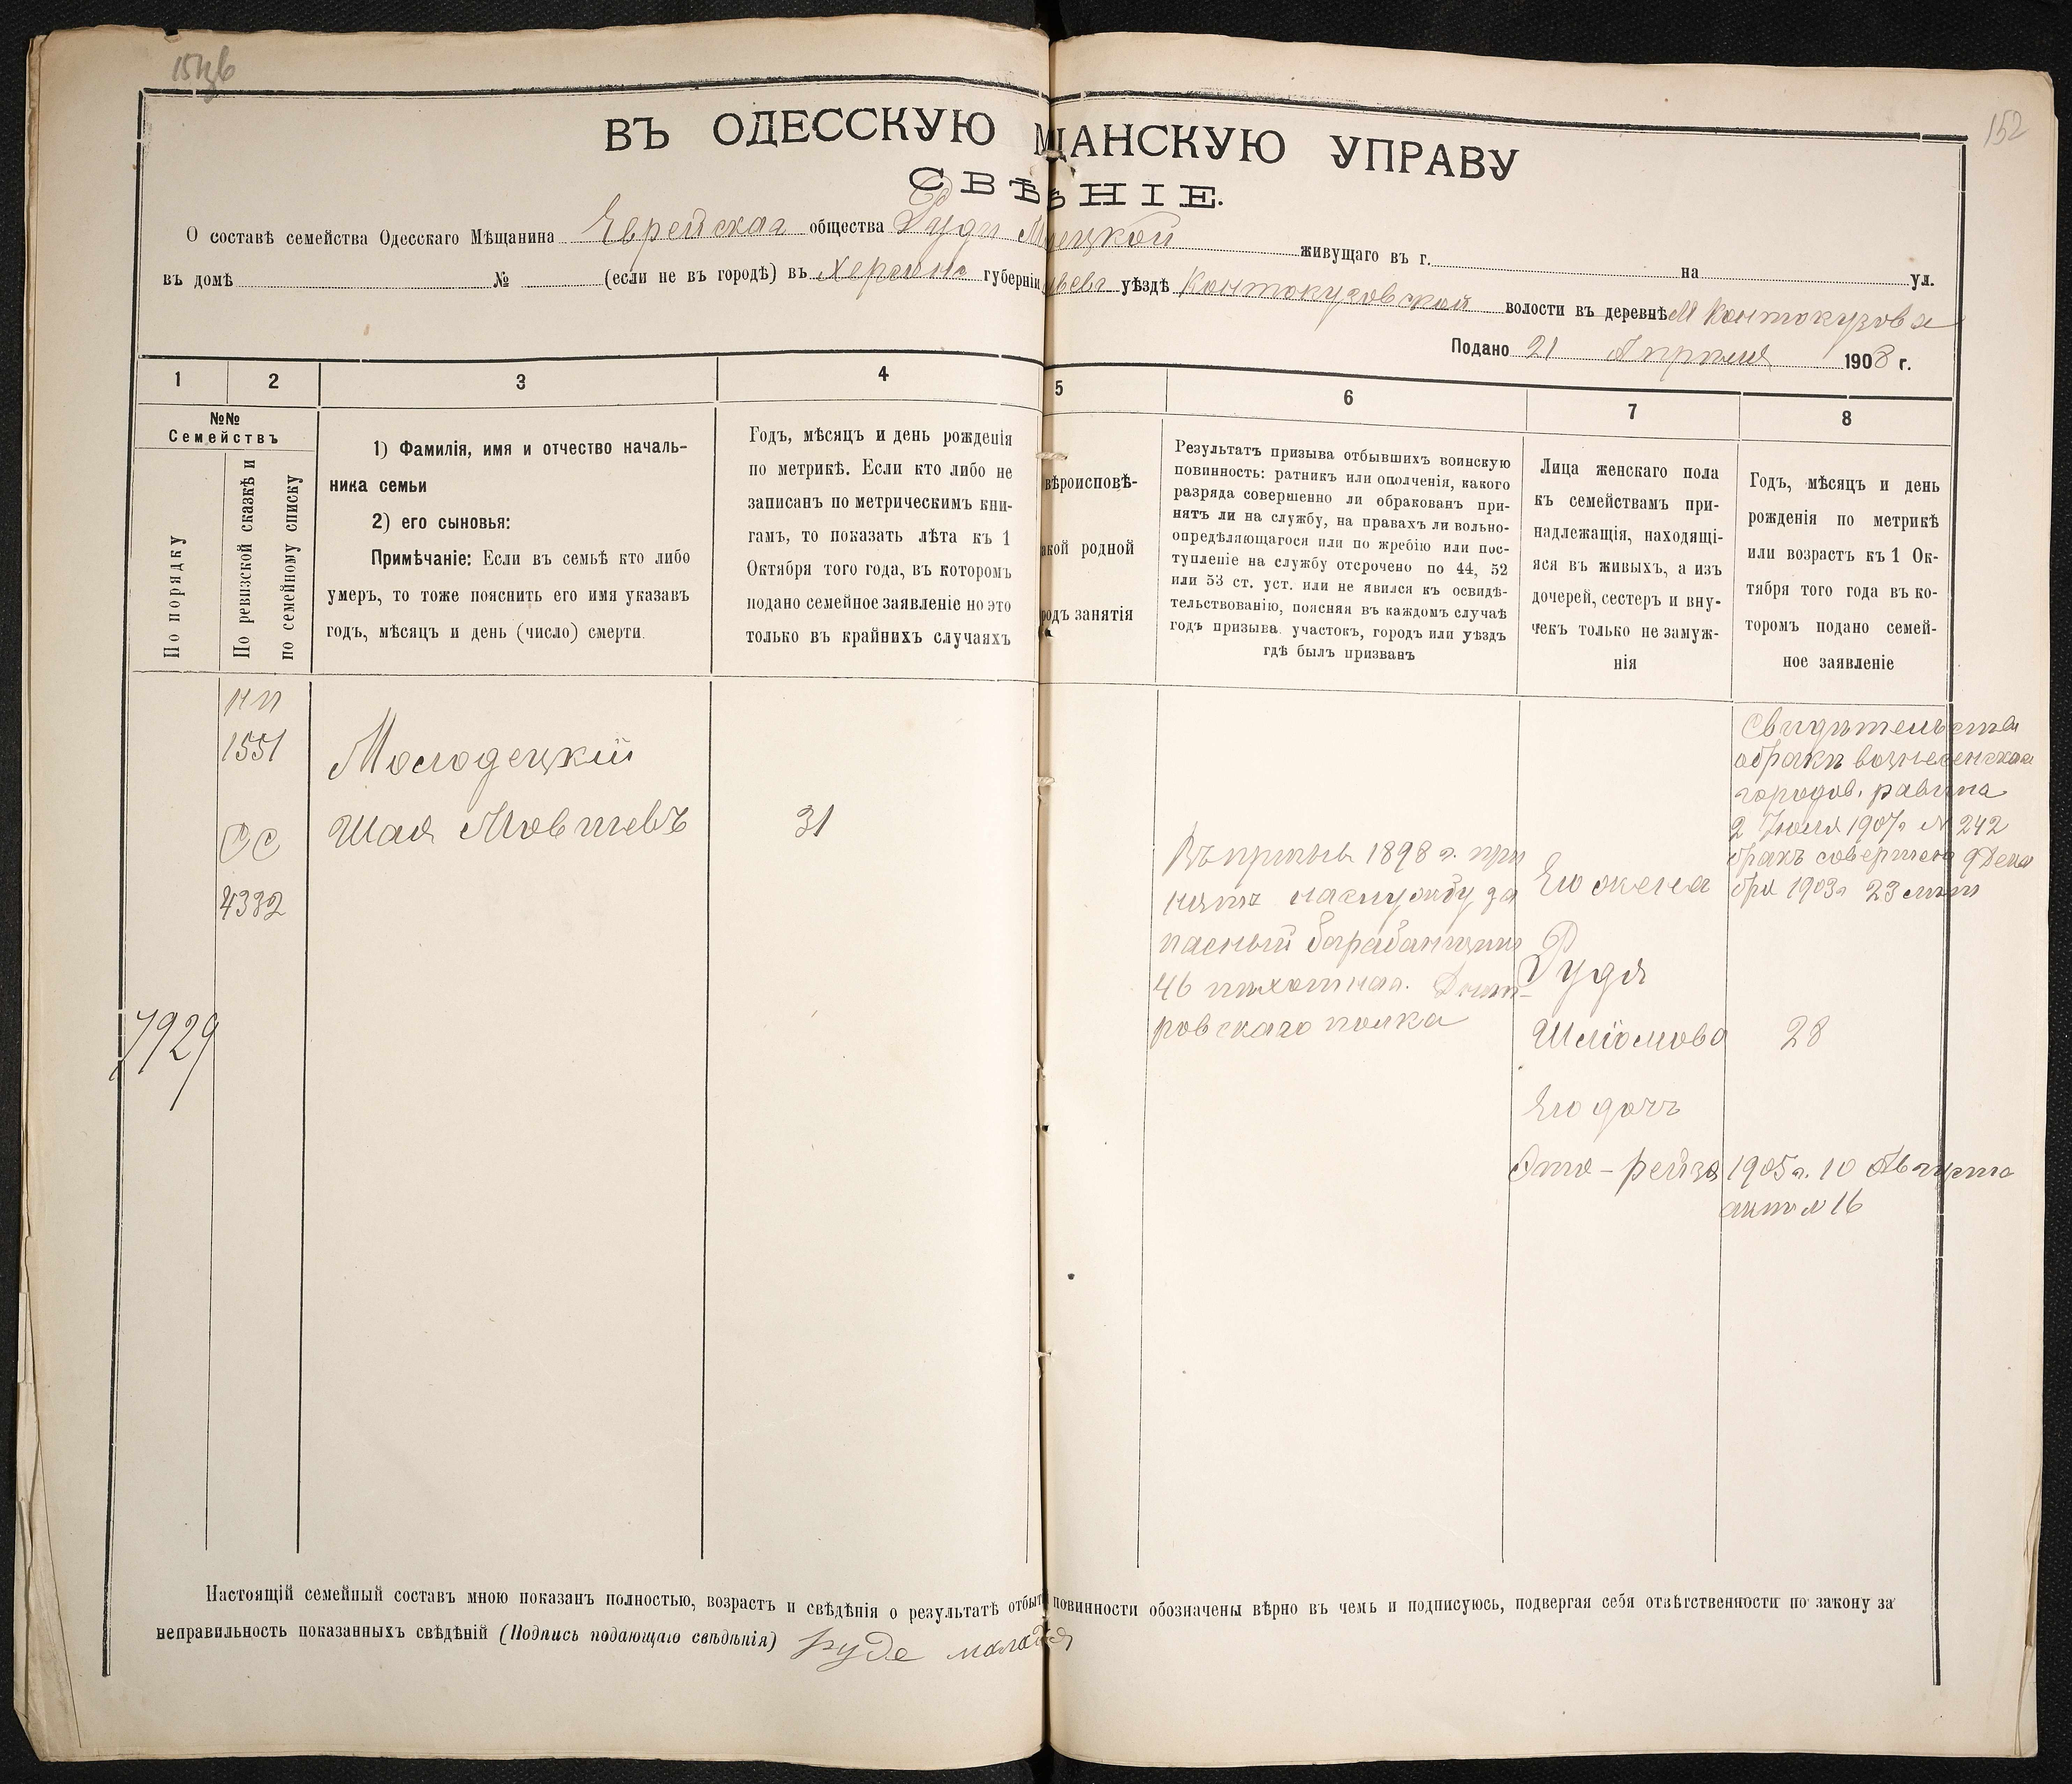 152
ВЪ ОДЕССКУЮ МѢЩАНСКУЮ УПРАВУ
СВѢДѢНІЕ.
О составѣ семейства Одесскаго Мѣщанина Еврейскаго общества Руди Мо ецкой живущаго въ г. на ул.
въ домѣ № (если не въ городѣ) въ Херсонс губерніи уѣздѣ Контокузовской волости въ деревнѣ М Контокузова
Подано 21 Апрѣля 1908 г.
1 2 3 4 5 6 7 8
№№
Семействъ
По порядку
По ревизской сказкѣ и
по семейному списку
1) Фамилія, имя и отчество началь-
ника семьи
2) его сыновья:
Примѣчаніе: Если въ семьѣ кто либо
умеръ, то тоже пояснить его имя указавъ
годъ, мѣсяцъ и день (число) смерти.
Годъ, мѣсяцъ и день рожденія
по метрикѣ. Если кто либо не
записанъ по метрическимъ кни-
гамъ, то показать лѣта къ 1
Октября того года, въ которомъ
подано семейное заявленіе но это
только въ крайнихъ случаяхъ
вѣроисповѣ-
акой родной
родъ занятія
Результатъ призыва отбывшихъ воинскую
повинность: ратникъ или ополченія, какого
разряда совершенно ли обракованъ при-
нятъ ли на службу, на правахъ ли вольно-
опредѣляющагося или по жребію или пос-
тупленіе на службу отсрочено по 44, 52
или 53 ст. уст. или не явился къ освидѣ-
тельствованію, поясняя въ каждомъ случаѣ
годъ призыва. участокъ, городъ или уѣздъ
гдѣ былъ призванъ
Лица женскаго пола
къ семействамъ при-
надлежащія, находящі-
яся въ живыхъ, а изъ
дочерей, сестеръ и вну-
чекъ только не замуж-
нія
Годъ, мѣсяцъ и день
рожденія по метрикѣ
или возрастъ къ 1 Ок-
тября того года въ ко-
торомъ подано семей-
ное заявленіе
1551
СС
4332
7929
Молодецкій
Шая Мовшевъ
31
Въ призывѣ 1898 г. при
нятъ на службу за
пасный барабанщикъ
46 пѣхотнаг. Днѣп-
ровскаго полка
Его жена
Рудя
Шліомова
28
Его дочь
Этя-Рейзя
Свидѣтельства
о бракѣ вознесенскаго
городов. равина
2 Іюля 1907 г № 242
бракъ совершенъ 9 Дека
бря 1903 г 23 лѣтъ
1905 г. 10 Августа
актъ № 16
Настоящій семейный составъ мною показанъ полностью, возрастъ и свѣдѣнія о результатѣ отбыт повинности обозначены вѣрно въ чемъ и подписуюсь, подвергая себя отвѣтственности по закону за
неправильность показанныхъ свѣдѣній (Подпись подающаго свѣдѣнія) Руде молод